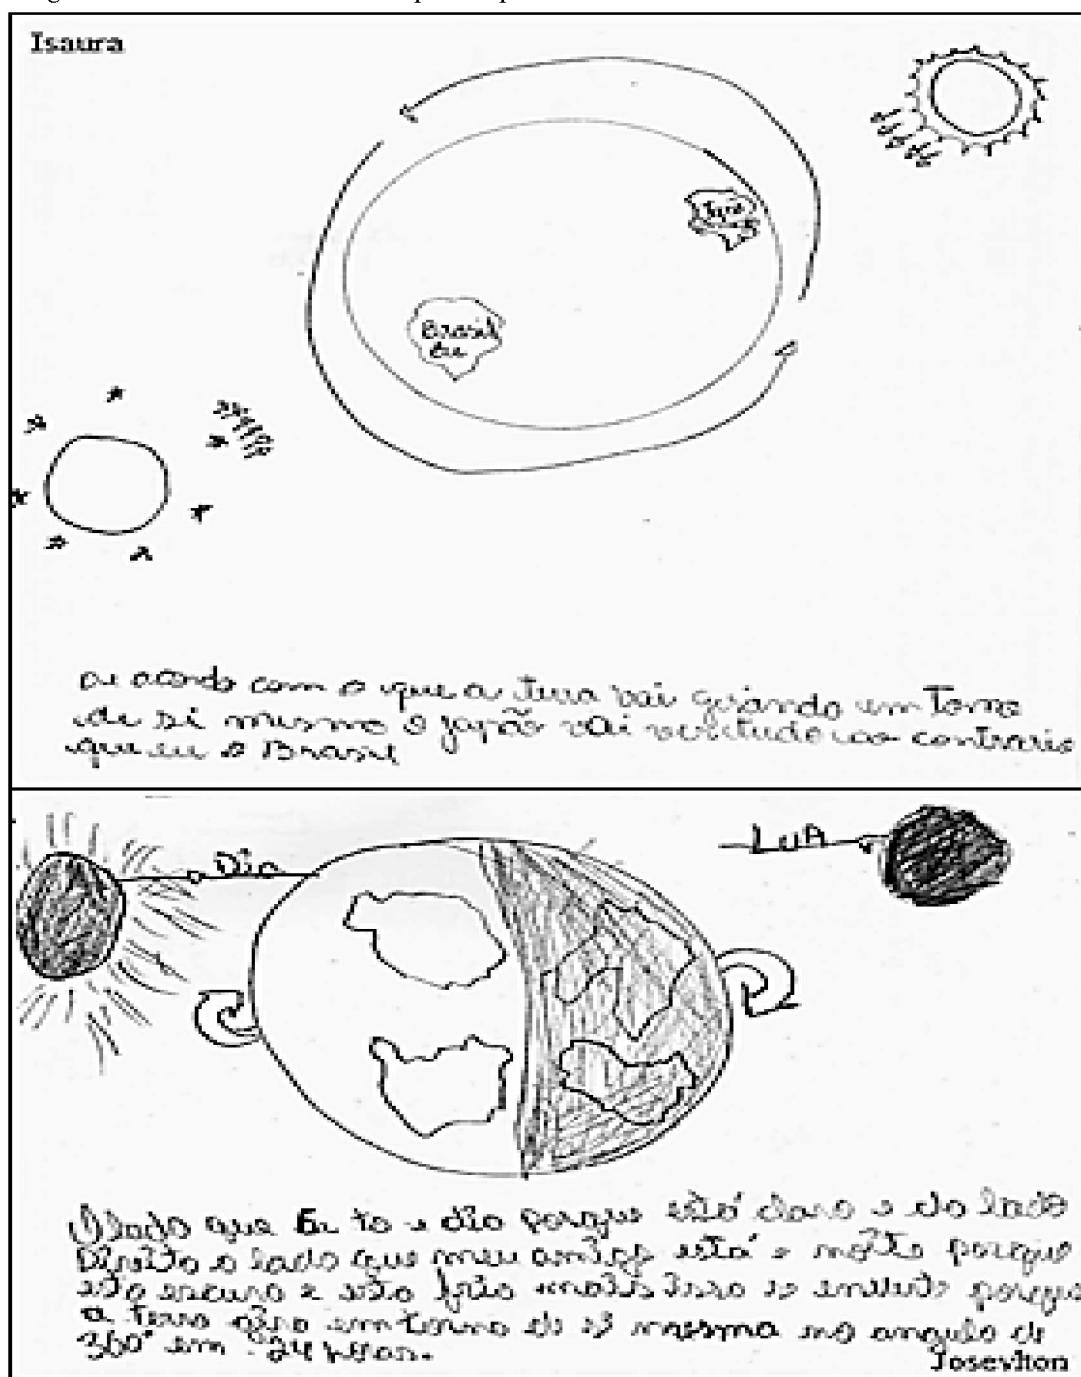 Isaura
Japão
Brasil
Eu
de acordo com o que a terra vai girando em torno
de si mesmo o japão vai ver tudo ao contrario
que eu o Brasil
Dia
LUA
O lado que Eu to e dia porque está claro e do lado
Direito o lado que meu amigo está e noite porque
esta escuro e esta frio mais isso so porque
a terra gira em torno de si mesma no angulo de
360° em 24 horas.
Josevlton